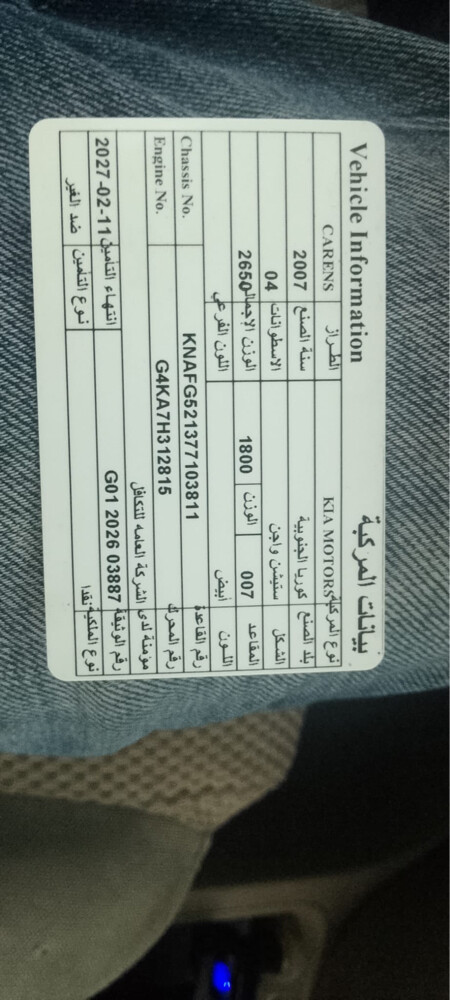 Vehicle Information بيانات المركبة
نوع المركبة KIA MOTORS الطراز CARENS
بلد الصنع كوريا الجنوبية سنة الصنع 2007
الشكل ستيشن واجن الاسطوانات 04
المقاعد 007 الوزن 1800 الوزن الإجمالي 2650
اللون أبيض اللون الفرعي
رقم القاعدة KNAFG521377103811 Chassis No.
رقم المحرك G4KA7H312815 Engine No.
مؤمنة لدى الشركة العامه للتكافل
رقم الوثيقة G01 2026 03887 انتهاء التأمين 2027-02-11
نوع الملكية نقدا نوع التأمين ضد الغير